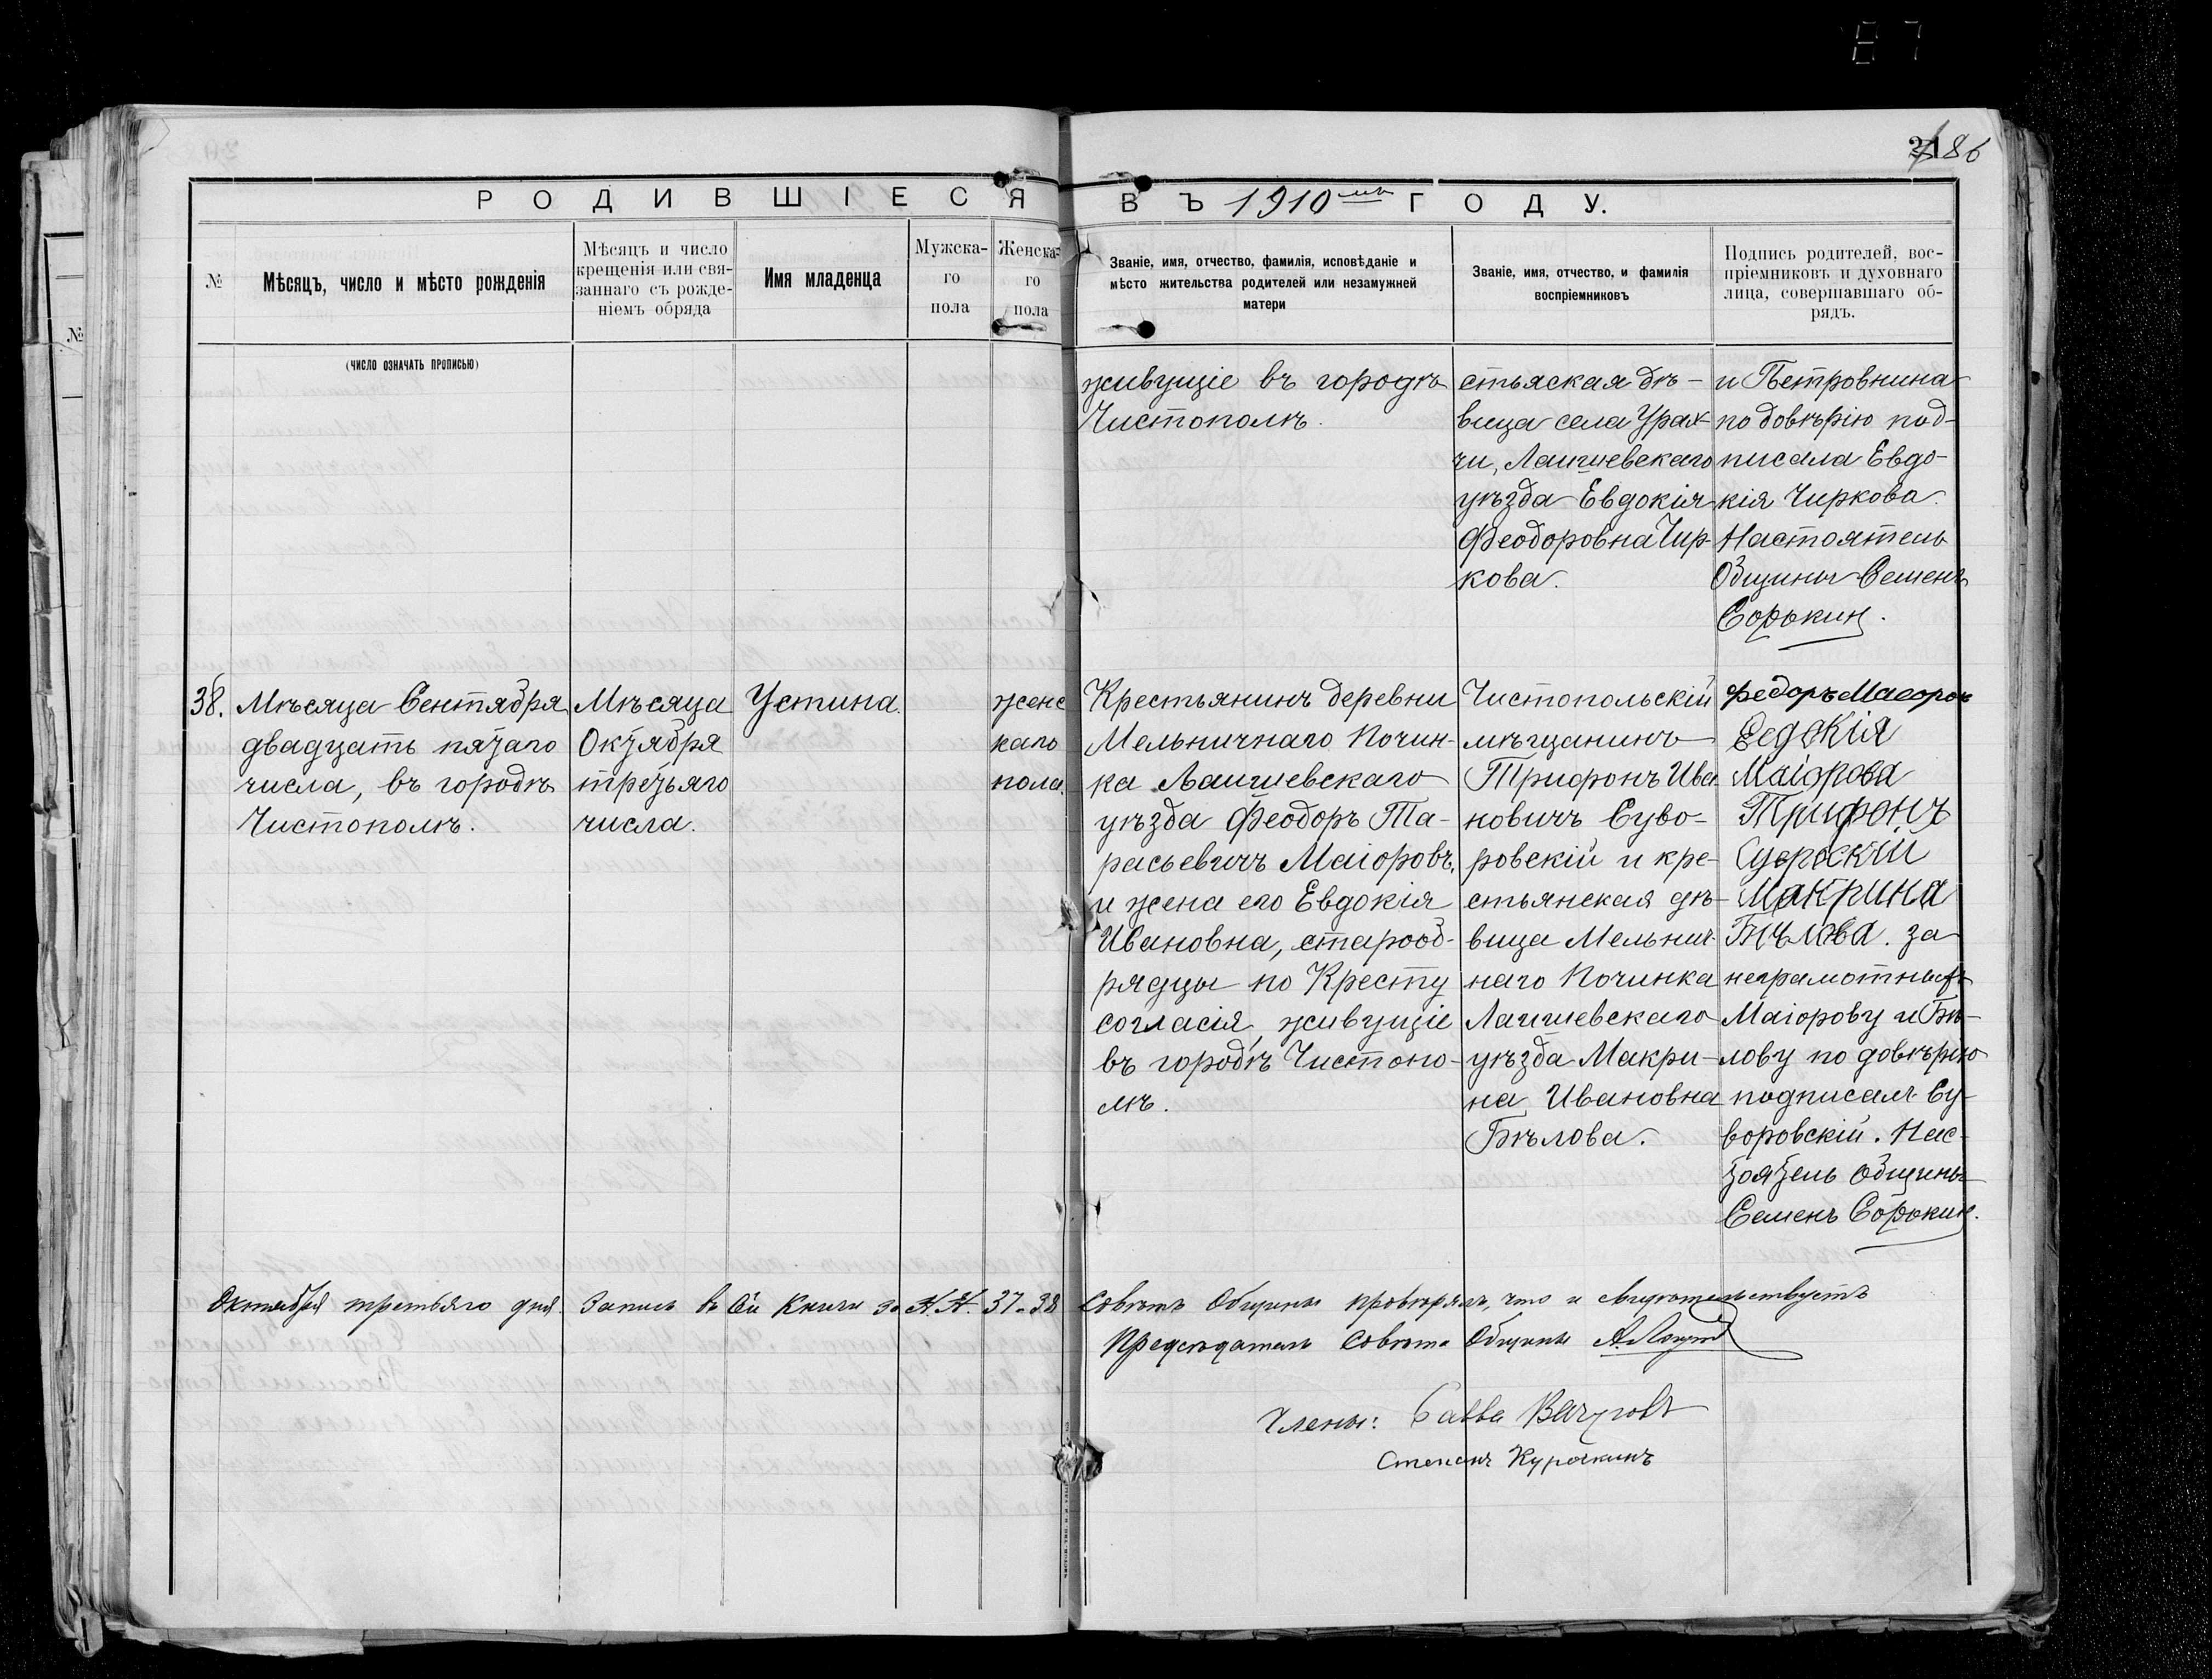 87
186
РОДИВШІЕСЯ ВЪ 1910мъ ГОДУ.
№
Мѣсяцъ, число и мѣсто рожденія
Мѣсяцъ и число
крещенія или свя-
заннаго съ рожде-
ніемъ обряда
Имя младенца
Мужска-
го
пола
Женска-
го
пола
Званіе, имя, отчество, фамилія, исповѣданіе и
мѣсто жительства родителей или незамужней
матери
Званіе, имя, отчество, и фамилія
воспріемниковъ
Подпись родителей, вос-
пріемниковъ и духовнаго
лица, совершавшаго об-
рядъ.
№
(число означать прописью)
живущіе въ городѣ
Чистополѣ.
стьяская дѣ-
вица села Урах-
чи, Лаишевскаго
уѣзда Евдокія
Феодоровна Чир-
кова.
и Петровнина
по довѣрію под-
писала Евдо-
кія Чиркова.
Настоятель
Общины Семенъ
Сорокин.
38.
Мѣсяца Сентября
двадцать пятаго
числа, въ городѣ
Чистополѣ.
Мѣсяца
Октября
третьяго
числа.
Устина.
женс
каго
пола.
Крестьянинъ деревни
Мельничнаго Почин-
ка Лаишевскаго
уѣзда Феодоръ Та-
расьевичъ Маіоровъ,
и жена его Евдокія
Ивановна, старооб-
рядцы по Кресту
согласія, живущіе
въ городѣ Чистопо-
лѣ.
Чистопольскій
мѣщанинъ
Трифонъ Ива
новичъ Суво-
ровскій и кре-
стьянская дѣ-
вица Мельнич-
наго Починка
Лаишевскаго
уѣзда Макри-
на Ивановна
Бѣлова.
Федоръ Маеоров
Евдокія
Маіорова
Трифонъ
Макрина
Бѣлова. за
неграмотныхъ
Маіорову и Бѣ-
лову по довѣрію
подписалъ Су-
воровскій. Нас-
тоятель Общины
Семенъ Сорокин.
Октября третьяго дня. Запись в сій книги за Н.Н. 37-38 Совѣтъ Общины провѣрялъ, что и свидѣтельствуетъ
Предсѣдатель Совѣта Общины
Члены: Савва Вачуговъ
Степанъ Курочкинъ